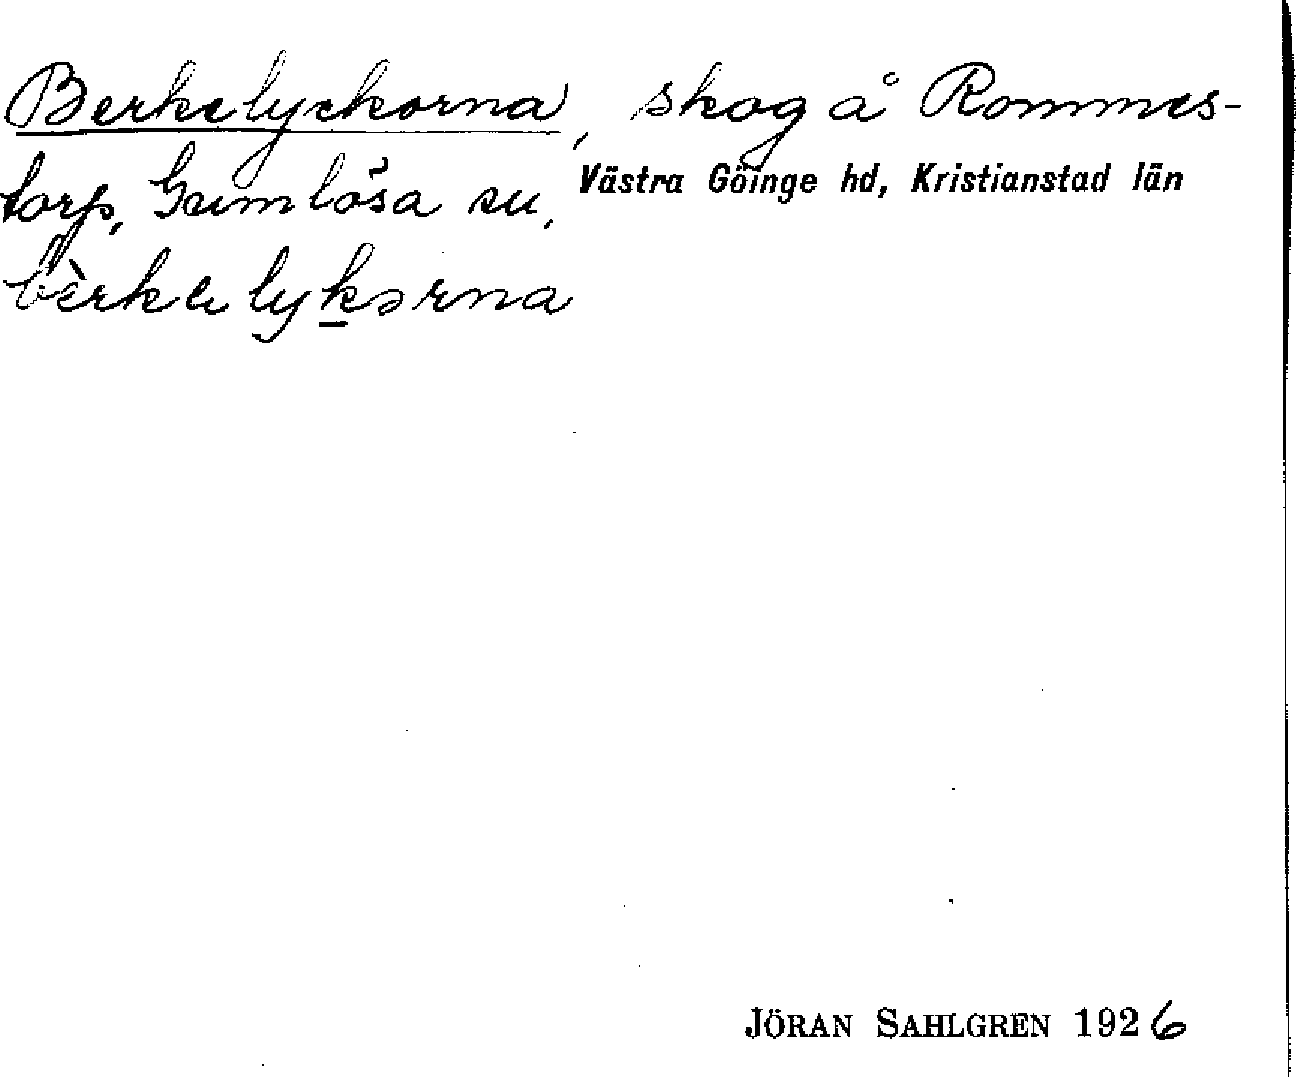 Berkelyckorna, skog å Rommes-
torp, Gumlösa sn, Västra Göinge hd, Kristianstad län
bèrkelykorna
JÖRAN SAHLGREN 1926